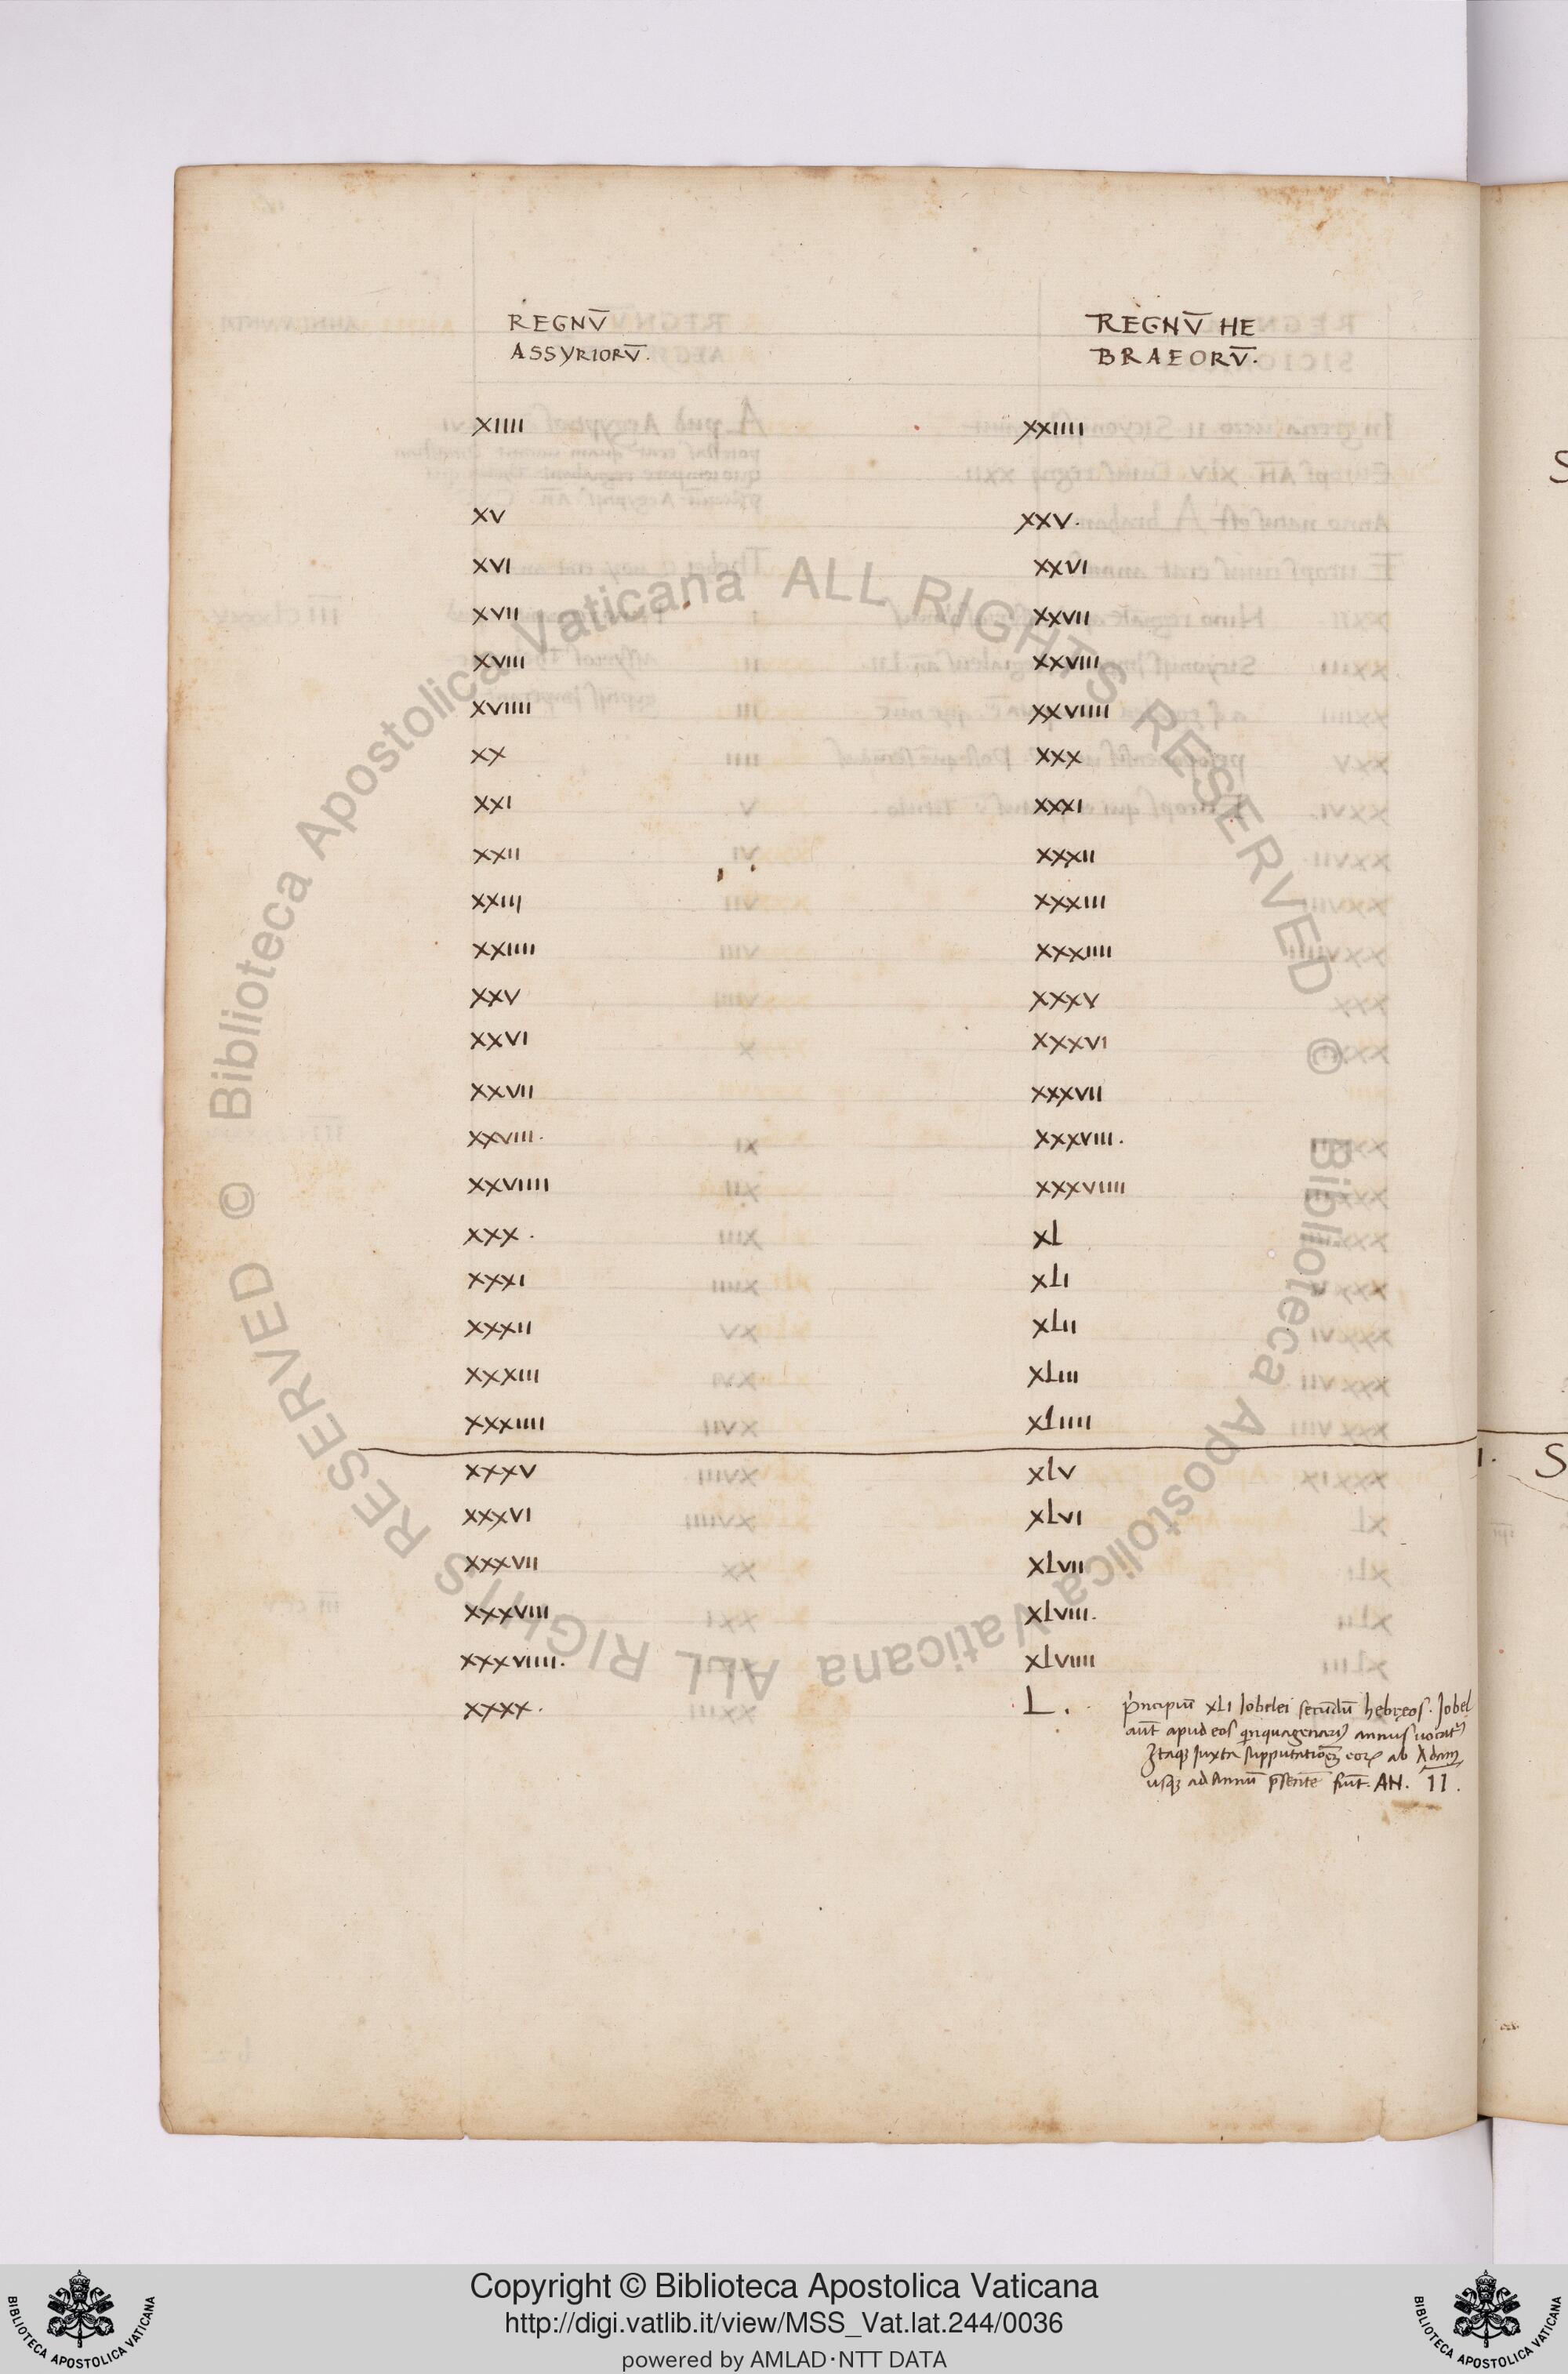 REGNV̄
ASSYRIORV̄.
REGNV̄ HE
BRAEORV̄.
XIIII XXIIII
XV XXV.
XVI XXVI
XVII XXVII
XVIII XXVIII
XVIIII XXVIIII
XX XXX
XXI XXXI
XXII XXXII
XXIII XXXIII
XXIIII XXXIIII
XXV XXXV
XXVI XXXVI
XXVII XXXVII
XXVIII. XXXVIII.
XXVIIII XXXVIIII
XXX. XL
XXXI XLI
XXXII XLII
XXXIII XLIII
XXXIIII XLIIII
XXXV XLV
XXXVI XLVI
XXXVII XLVII
XXXVIII XLVIII.
XXXVIIII. XLVIIII
XXXX. L. principiū XLI Iobelei secūdū hebręos. Iobel
aūt apud eos qinquagenariꝰ annus uocatꝰ
Itaqꝫ Iuxta supputationē eoꝝ ab Adam
usqꝫ ad Annū p̄sentē fiūt. AN. I̅I̅.
S
S
© Biblioteca Apostolica Vaticana ALL RIGHTS RESERVED
© Biblioteca Apostolica Vaticana ALL RIGHTS RESERVED
Copyright © Biblioteca Apostolica Vaticana
http://digi.vatlib.it/view/MSS_Vat.lat.244/0036
powered by AMLAD·NTT DATA
BIBLIOTECA APOSTOLICA VATICANA
BIBLIOTECA APOSTOLICA VATICANA